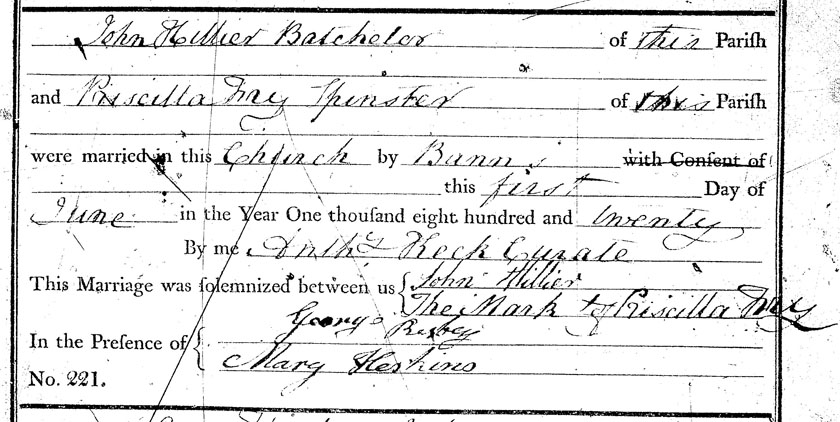 John Hillier Batchelor of this Pariſh
and Priscilla Fry Spinster of this Pariſh
were married in this Church by Banns with Conſent of
this first Day of
June in the Year One thouſand eight hundred and twenty
By me Anthy Keck Curate
This Marriage was ſolemnized between us { John Hillier
The Mark + of Priscilla Fry
In the Preſence of { George
Mary Heskins
No. 221.